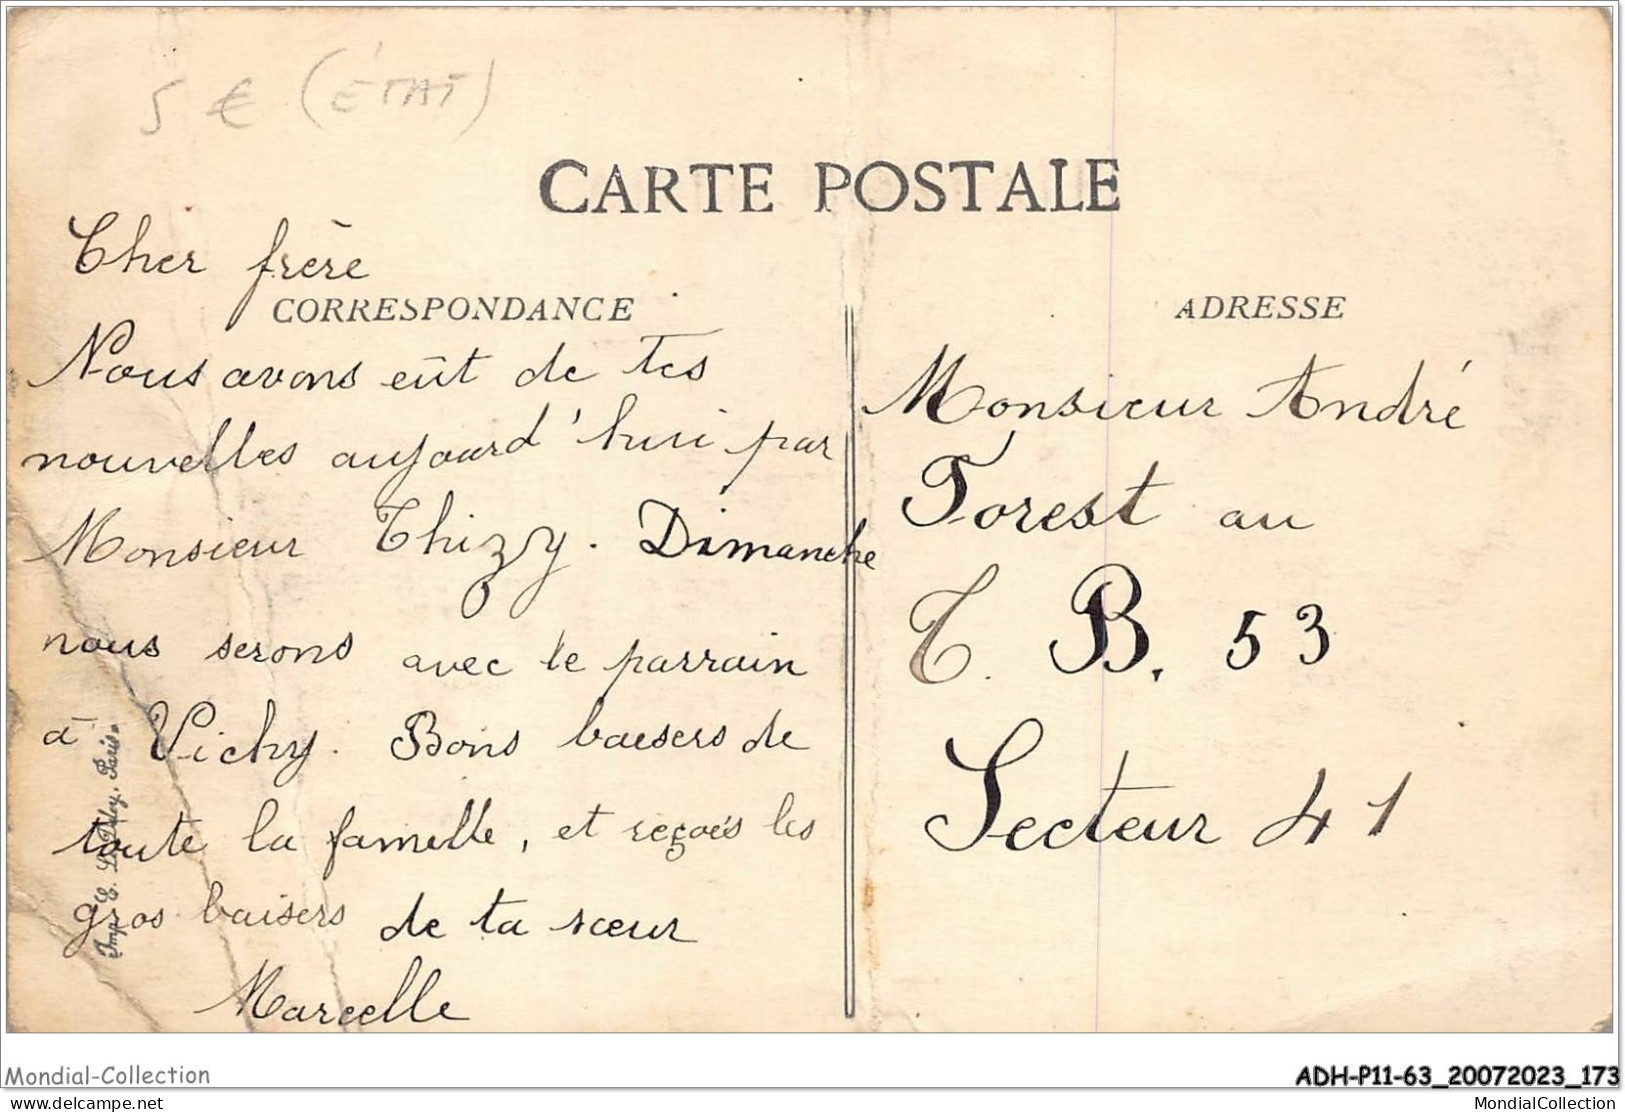 5 € (ÉTAT)
CARTE POSTALE
Cher frère
CORRESPONDANCE
Nous avons eût de tes
nouvelles aujourd'hui par
Monsieur Thizy. Dimanche
nous serons avec le parrain
à Vichy. Bons baesers de
toute la famelle, et reçoés les
gros baisers de ta sœur
Marcelle
Imp. E. Le Deley, Paris.
ADRESSE
Monsieur André
Forest au
T. B. 53
Secteur 41
Mondial-Collection
ADH-P11-63_20072023_173
delcampe.net
MondialCollection